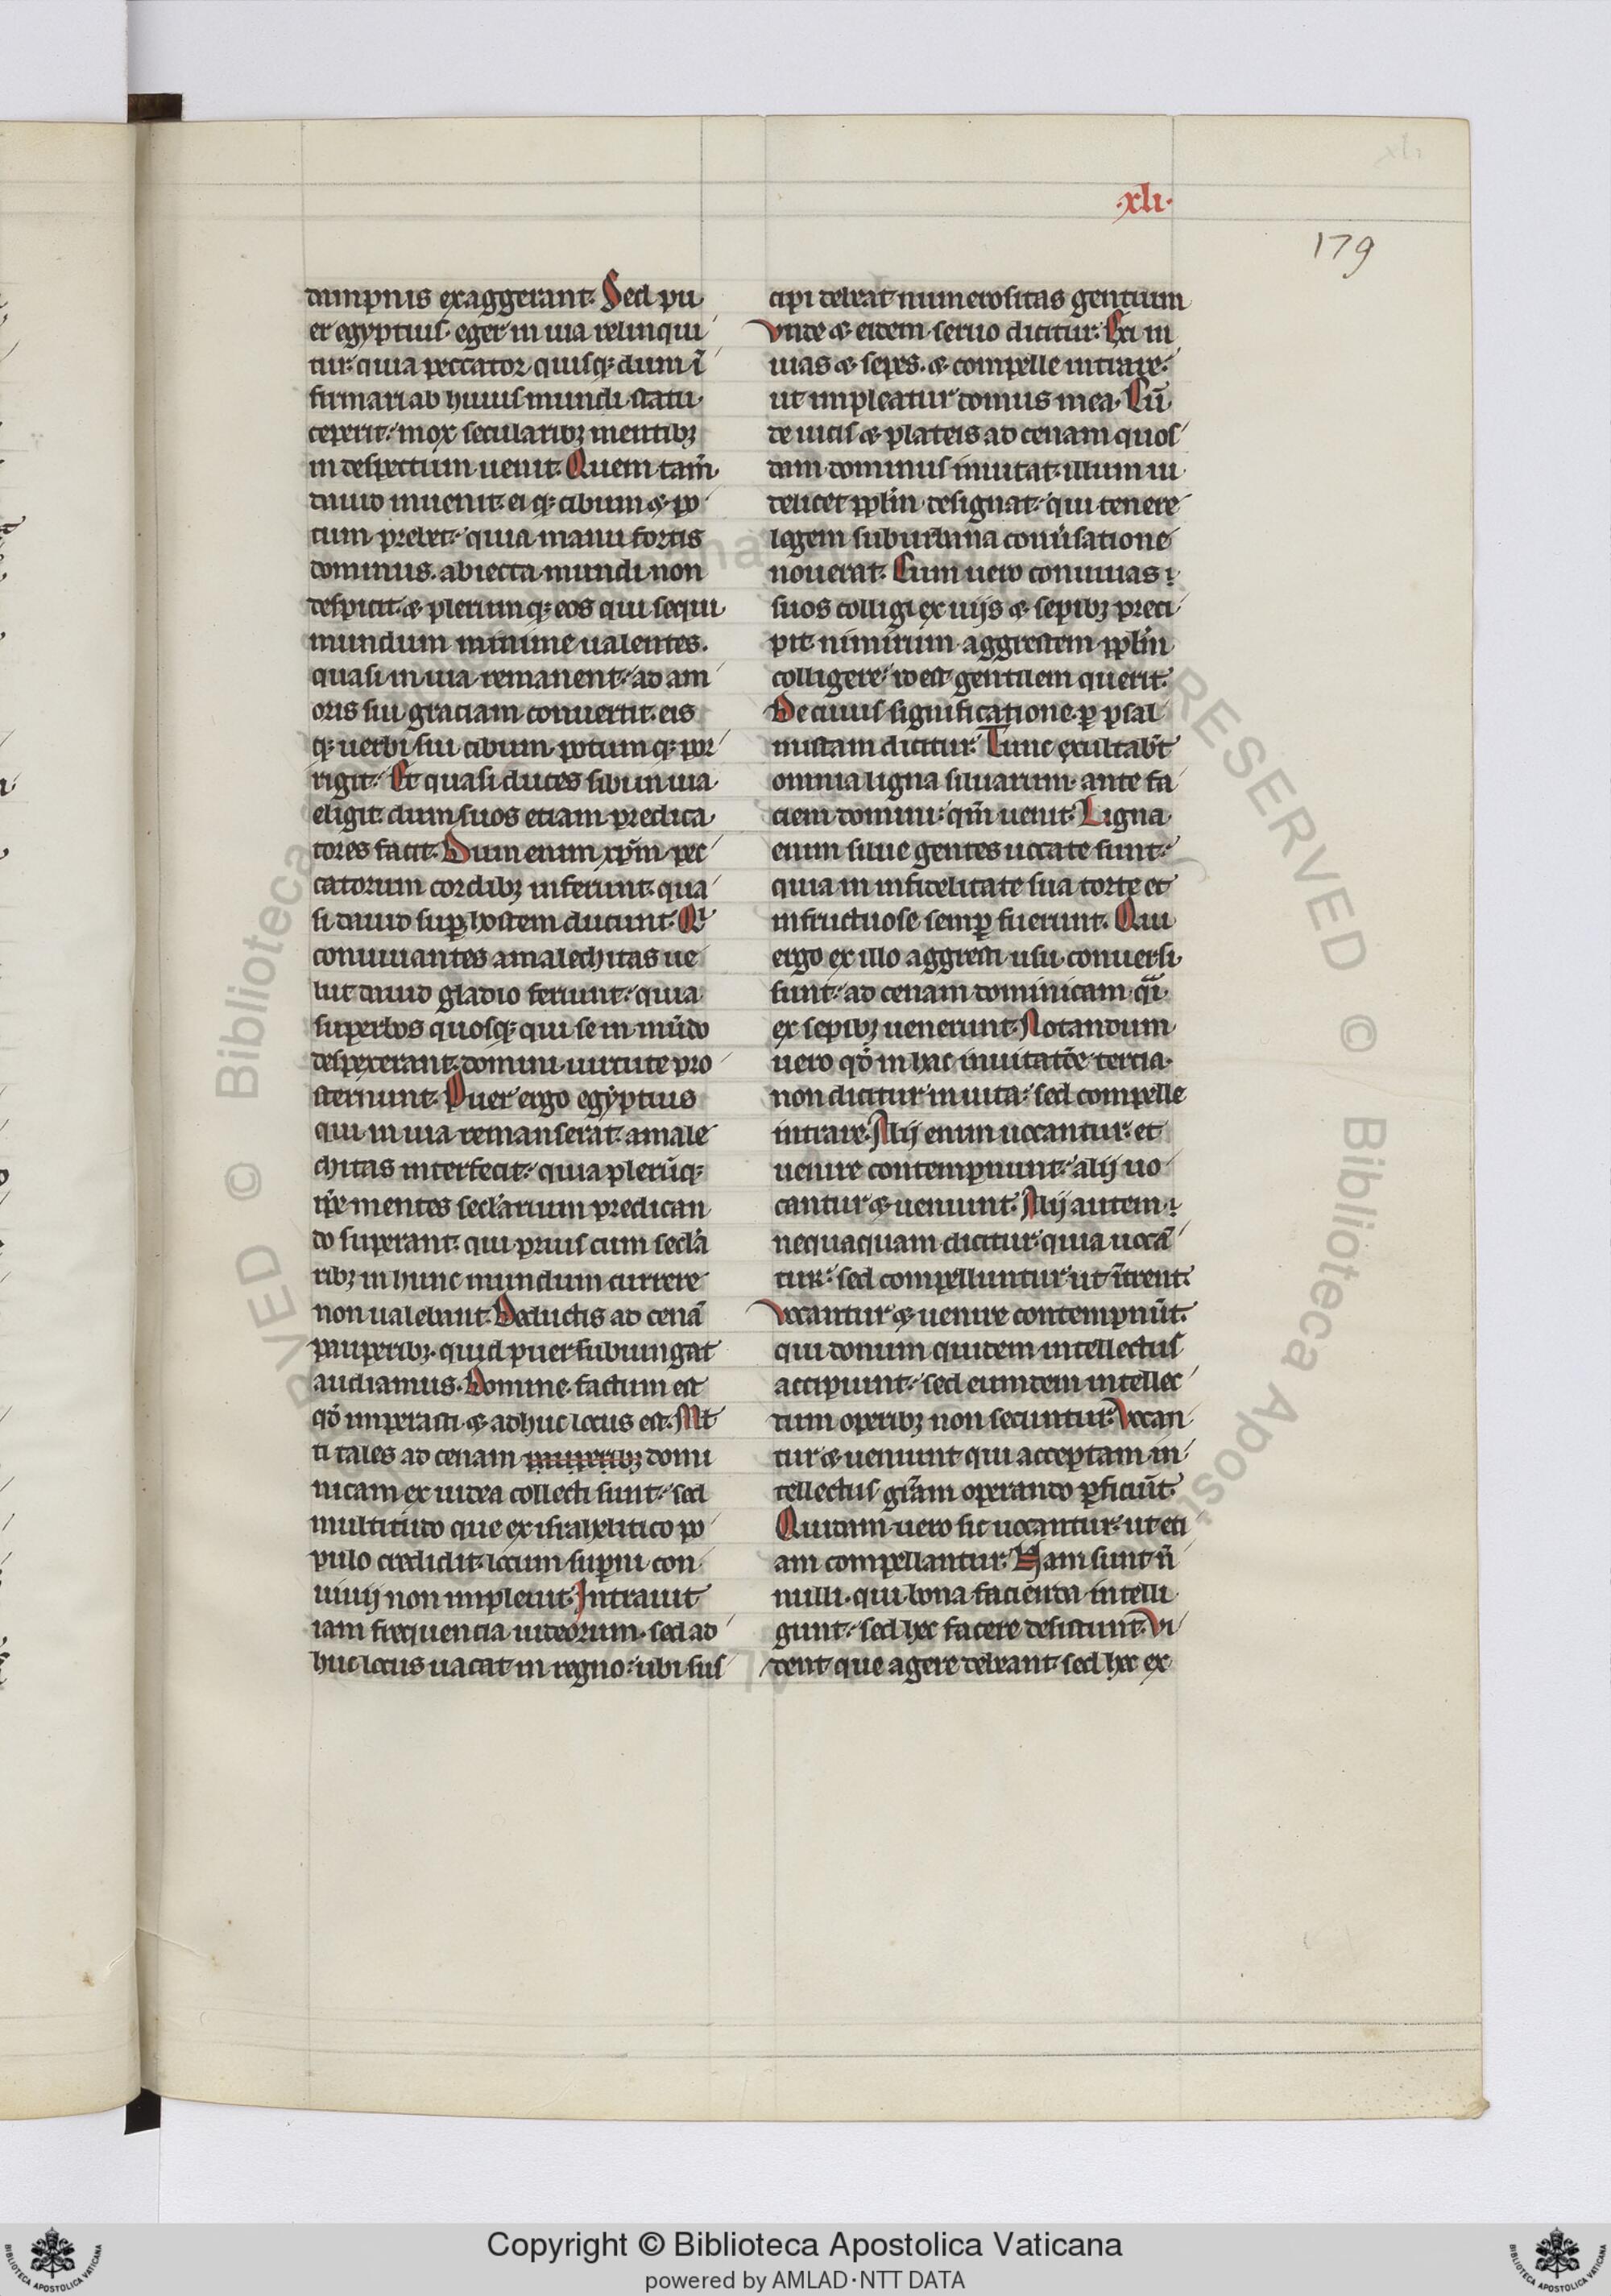 .xli.
179
dampnis exaggerant. Sed pu
er egyptius eger in uia relinqui
tur: quia peccator quisq; dum ī
firmari ab huius mundi statu
ceperit: mox secularib; mentib;
in despectum uenit. Quem tam̄
dauid inuenit. ei q; cibum & po
tum prebet: quia manu fortis
dominus. abiecta mundi non
despicit. & plerumq; eos qui sequi
mundum minime ualentes.
quasi in uia remanent: ad am
oris sui graciam conuertit. eis
q; uerbi sui cibum potumq; por
rigit. Et quasi duces sibi in uia
eligit. dum suos etiam predica
tores facit. Dum enim xp̄m pec
catorum cordib; inferunt. qua
si dauid sup̱ hostem ducunt. Qi
conuiuantes amalechitas ue
lut dauid gladio feriunt: quia
superbos quosq; qui se in mūdo
despexerant. domini uirtute pro
sternunt. Puer ergo egyptius
qui in uia remanserat. amale
chitas interfecit: quia plerūq;
ip̄e mentes secl̄arium predican
do superant. qui prius cum secl̄a
rib; in hunc mundum currere
non ualebant. Deductis ad cenā
pauperib;. quid puer subiungat
audiamus. Domine. factum est
qd̄ imperasti. & adhuc locus est. Ml̄
ti tales ad cenam pauperib; domi
nicam ex iudea collecti sunt: sed
multitudo que ex israhelitico po
pulo credidit. locum sup̱ni con
uiuij non impleuit. Intrauit
iam frequencia iudeorum. sed ad
huc locus uacat in regno: ubi sus
cipi debeat numerositas gentium
Vnde & eidem seruo dicitur. Exi in
uias & sepes. & compelle intrare:
ut impleatur domus mea. Cū
de uicis & plateis ad cenam quos
dam dominus inuitat. illum ui
delicet pp̄lm designat: qui tenere
legem sub urbana conu̾satione
nouerat. Cum uero conuiuas
suos colligi ex uijs & sepib; preci
pit. nimirum aggrestem pp̄lm
colligere: id est gentilem querit.
De cuius significatione. p̱ psal
mistam dicitur. Tunc exultabt̄
omnia ligna siluarum. ante fa
ciem domini: qm̄ uenit. Ligna
enim silue gentes uocate sunt:
quia in infidelitate sua torte et
infructuose semp̱ fuerunt. Qui
ergo ex illo aggresti usu conuersi
sunt: ad cenam dominicam q̄i
ex sepib; uenerunt. Notandum
uero qd̄ in hac inuitatōe tercia.
non dicitur inuita: sed compelle
intrare. Alij enim uocantur. et
uenire contempnunt: alij uo
cantur & ueniunt. Alij autem
nequaquam dicitur quia uocā
tur: sed compelluntur ut īntrent.
Vocantur & uenire contempnūt.
qui donum quidem intellectus
accipiunt: sed eumdem intellec
tum operib; non secuntur. Vocan
tur & ueniunt qui acceptam in
tellectus gr̄am operando p̱ficiūt.
Quidam uero sic uocantur: ut eti
am compellantur. Nam sunt n̄
nulli. qui bona facienda intelli
gunt: sed hec facere desistunt. Vi
dent que agere debeant. sed hec ex
Copyright © Biblioteca Apostolica Vaticana
powered by AMLAD·NTT DATA